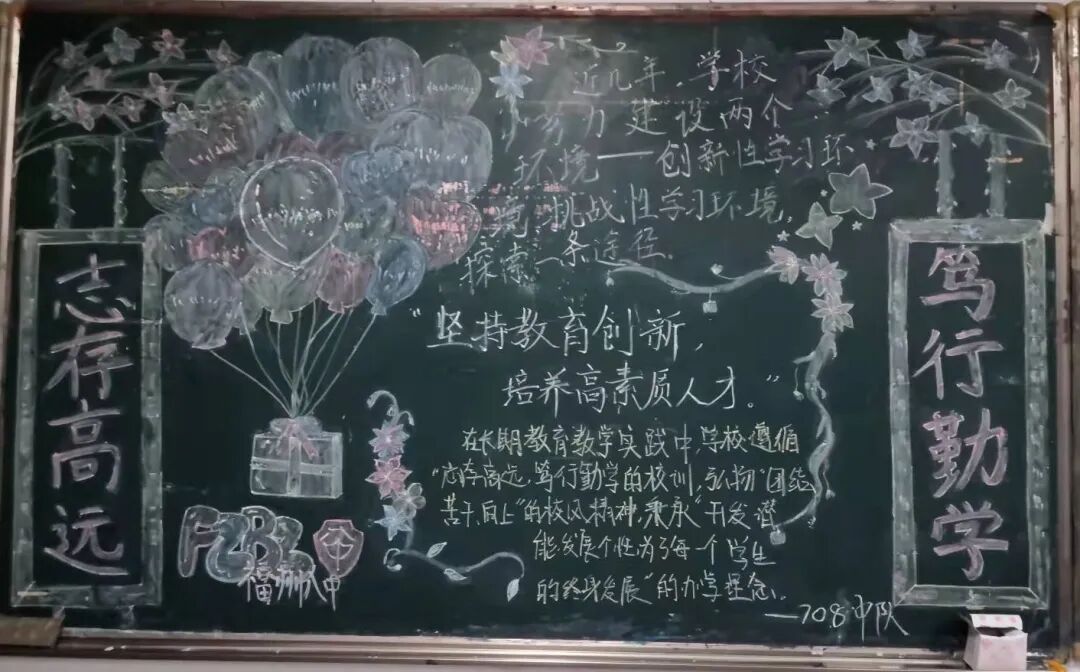 志存高远
近几年，学校
努力建设两个
环境——创新性学习环
境，挑战性学习环境，
探索一条途径。
“坚持教育创新，
培养高素质人才。”
在长期教育教学实践中，学校遵循
“志存高远，笃行勤学的校训，弘扬“团结
苦干，向上”的校风精神，秉承“开发潜
能，发展个性，为了每一个学生
的终身发展”的办学理念。
——708中队
FZBZ
福州八中
笃行勤学